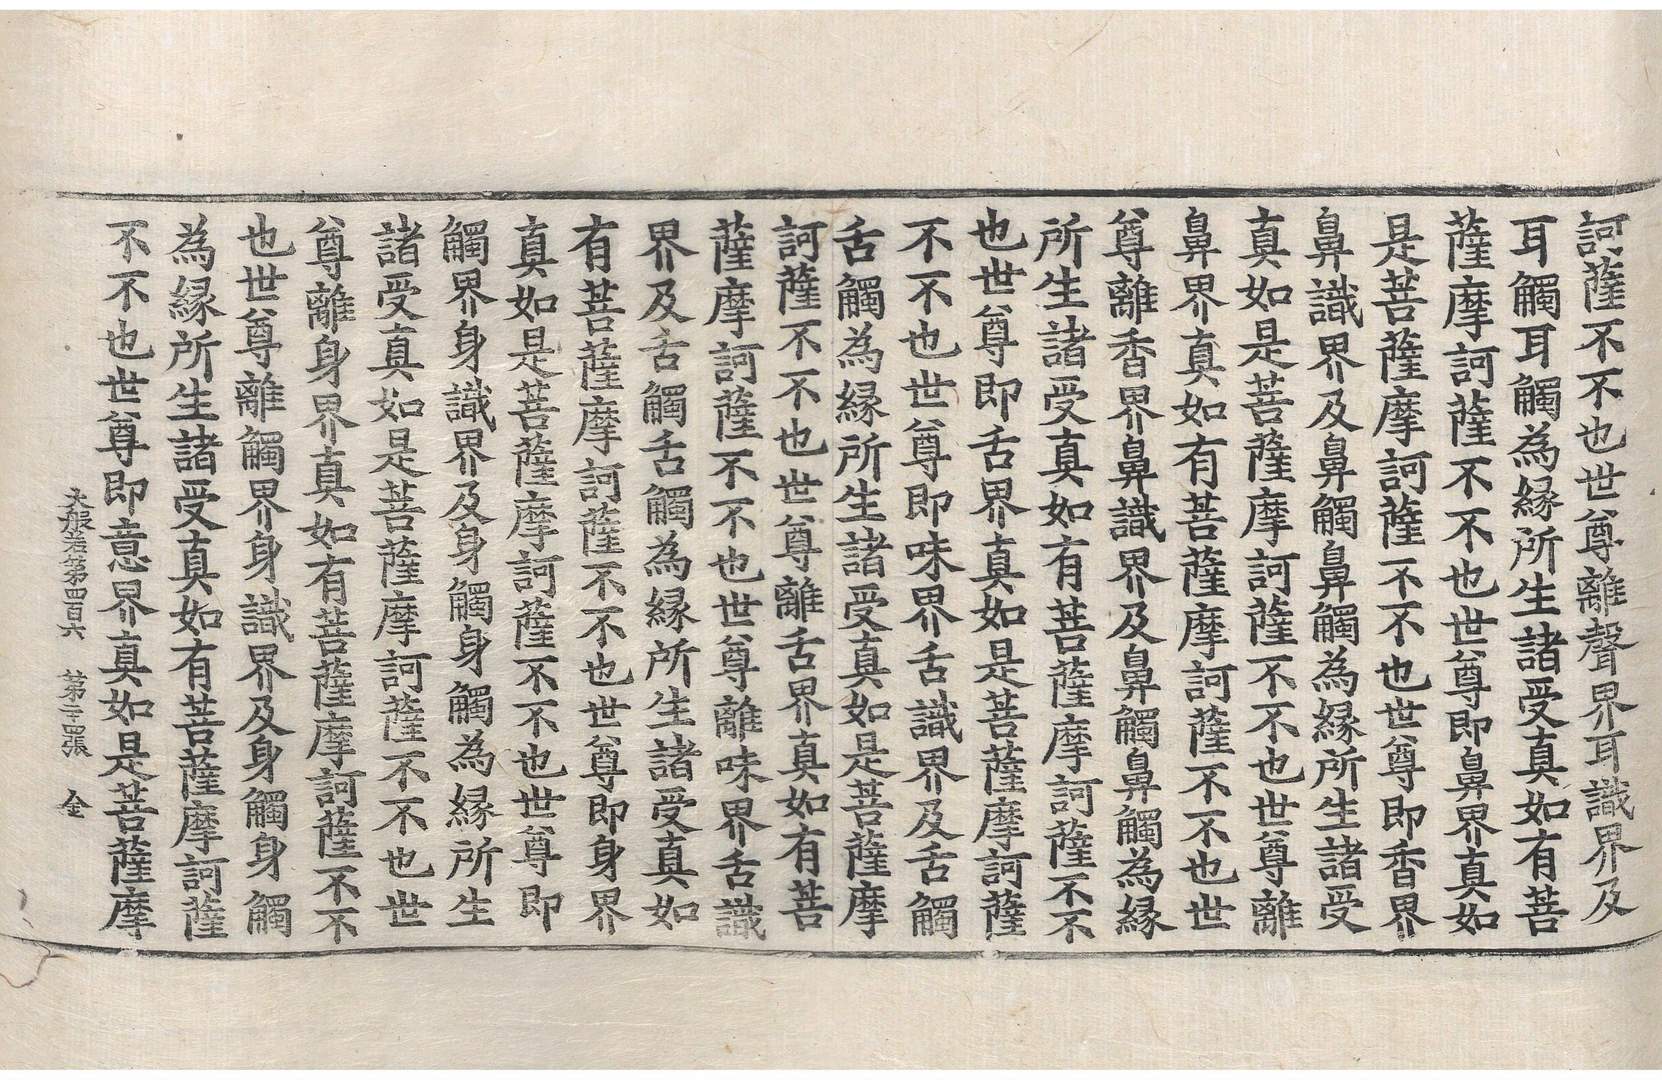 訶薩不不也世尊離聲界耳識界及
耳觸耳觸為縁所生諸受真如有菩
薩摩訶薩不不也世尊即鼻界真如
是菩薩摩訶薩不不也世尊即香界
鼻識界及鼻觸鼻觸為縁所生諸受
真如是菩薩摩訶薩不不也世尊離
鼻界真如有菩薩摩訶薩不不也世
尊離香界鼻識界及鼻觸鼻觸為縁
所生諸受真如有菩薩摩訶薩不不
也世尊即舌界真如是菩薩摩訶薩
不不也世尊即味界舌識界及舌觸
舌觸為縁所生諸受真如是菩薩摩
訶薩不不也世尊離舌界真如有菩
薩摩訶薩不不也世尊離味界舌識
界及舌觸舌觸為縁所生諸受真如
有菩薩摩訶薩不不也世尊即身界
真如是菩薩摩訶薩不不也世尊即
觸界身識界及身觸身觸為縁所生
諸受真如是菩薩摩訶薩不不也世
尊離身界真如有菩薩摩訶薩不不
也世尊離觸界身識界及身觸身觸
為縁所生諸受真如有菩薩摩訶薩
不不也世尊即意界真如是菩薩摩
大般若第四百六 第十四張 金